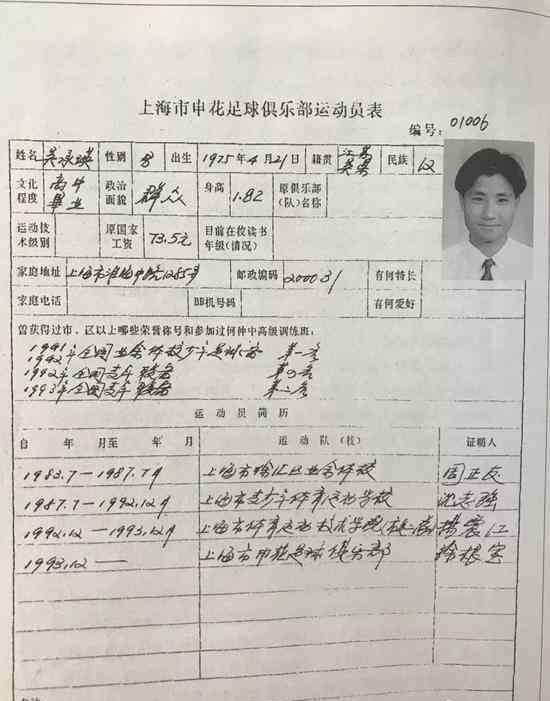 上海市申花足球俱乐部运动员表
编号: 01006
姓名 吴承瑛 性别 男 出生 1975年4月21日 籍贯 江苏 民族 汉
文化程度 高中毕业 政治面貌 群众 身高 1.82 原俱乐部(队)名称
运动技术级别 原国家工资 73.5元 目前在校读书年级(情况)
家庭地址 上海市淮海中路1285弄 邮政编码 200031 有何特长
家庭电话 BB机号码 有何爱好
曾获得过市、区以上哪些荣誉称号和参加过何种中高级训练班:
1991年
1992年全国业余体校少年足球赛 第一名
1992年全国青年联赛
1993年全国青年联赛
运动员简历
自 年 月至 年 月 运动队(校) 证明人
1983.7—1987.7月 上海市徐汇区业余体校 周正友
1987.7—1992.12月 上海市青少年体育运动学校 沈志强
1992.12—1993.12月 上海市体育运动技术学院
1993.12— 上海市申花足球俱乐部 徐根宝